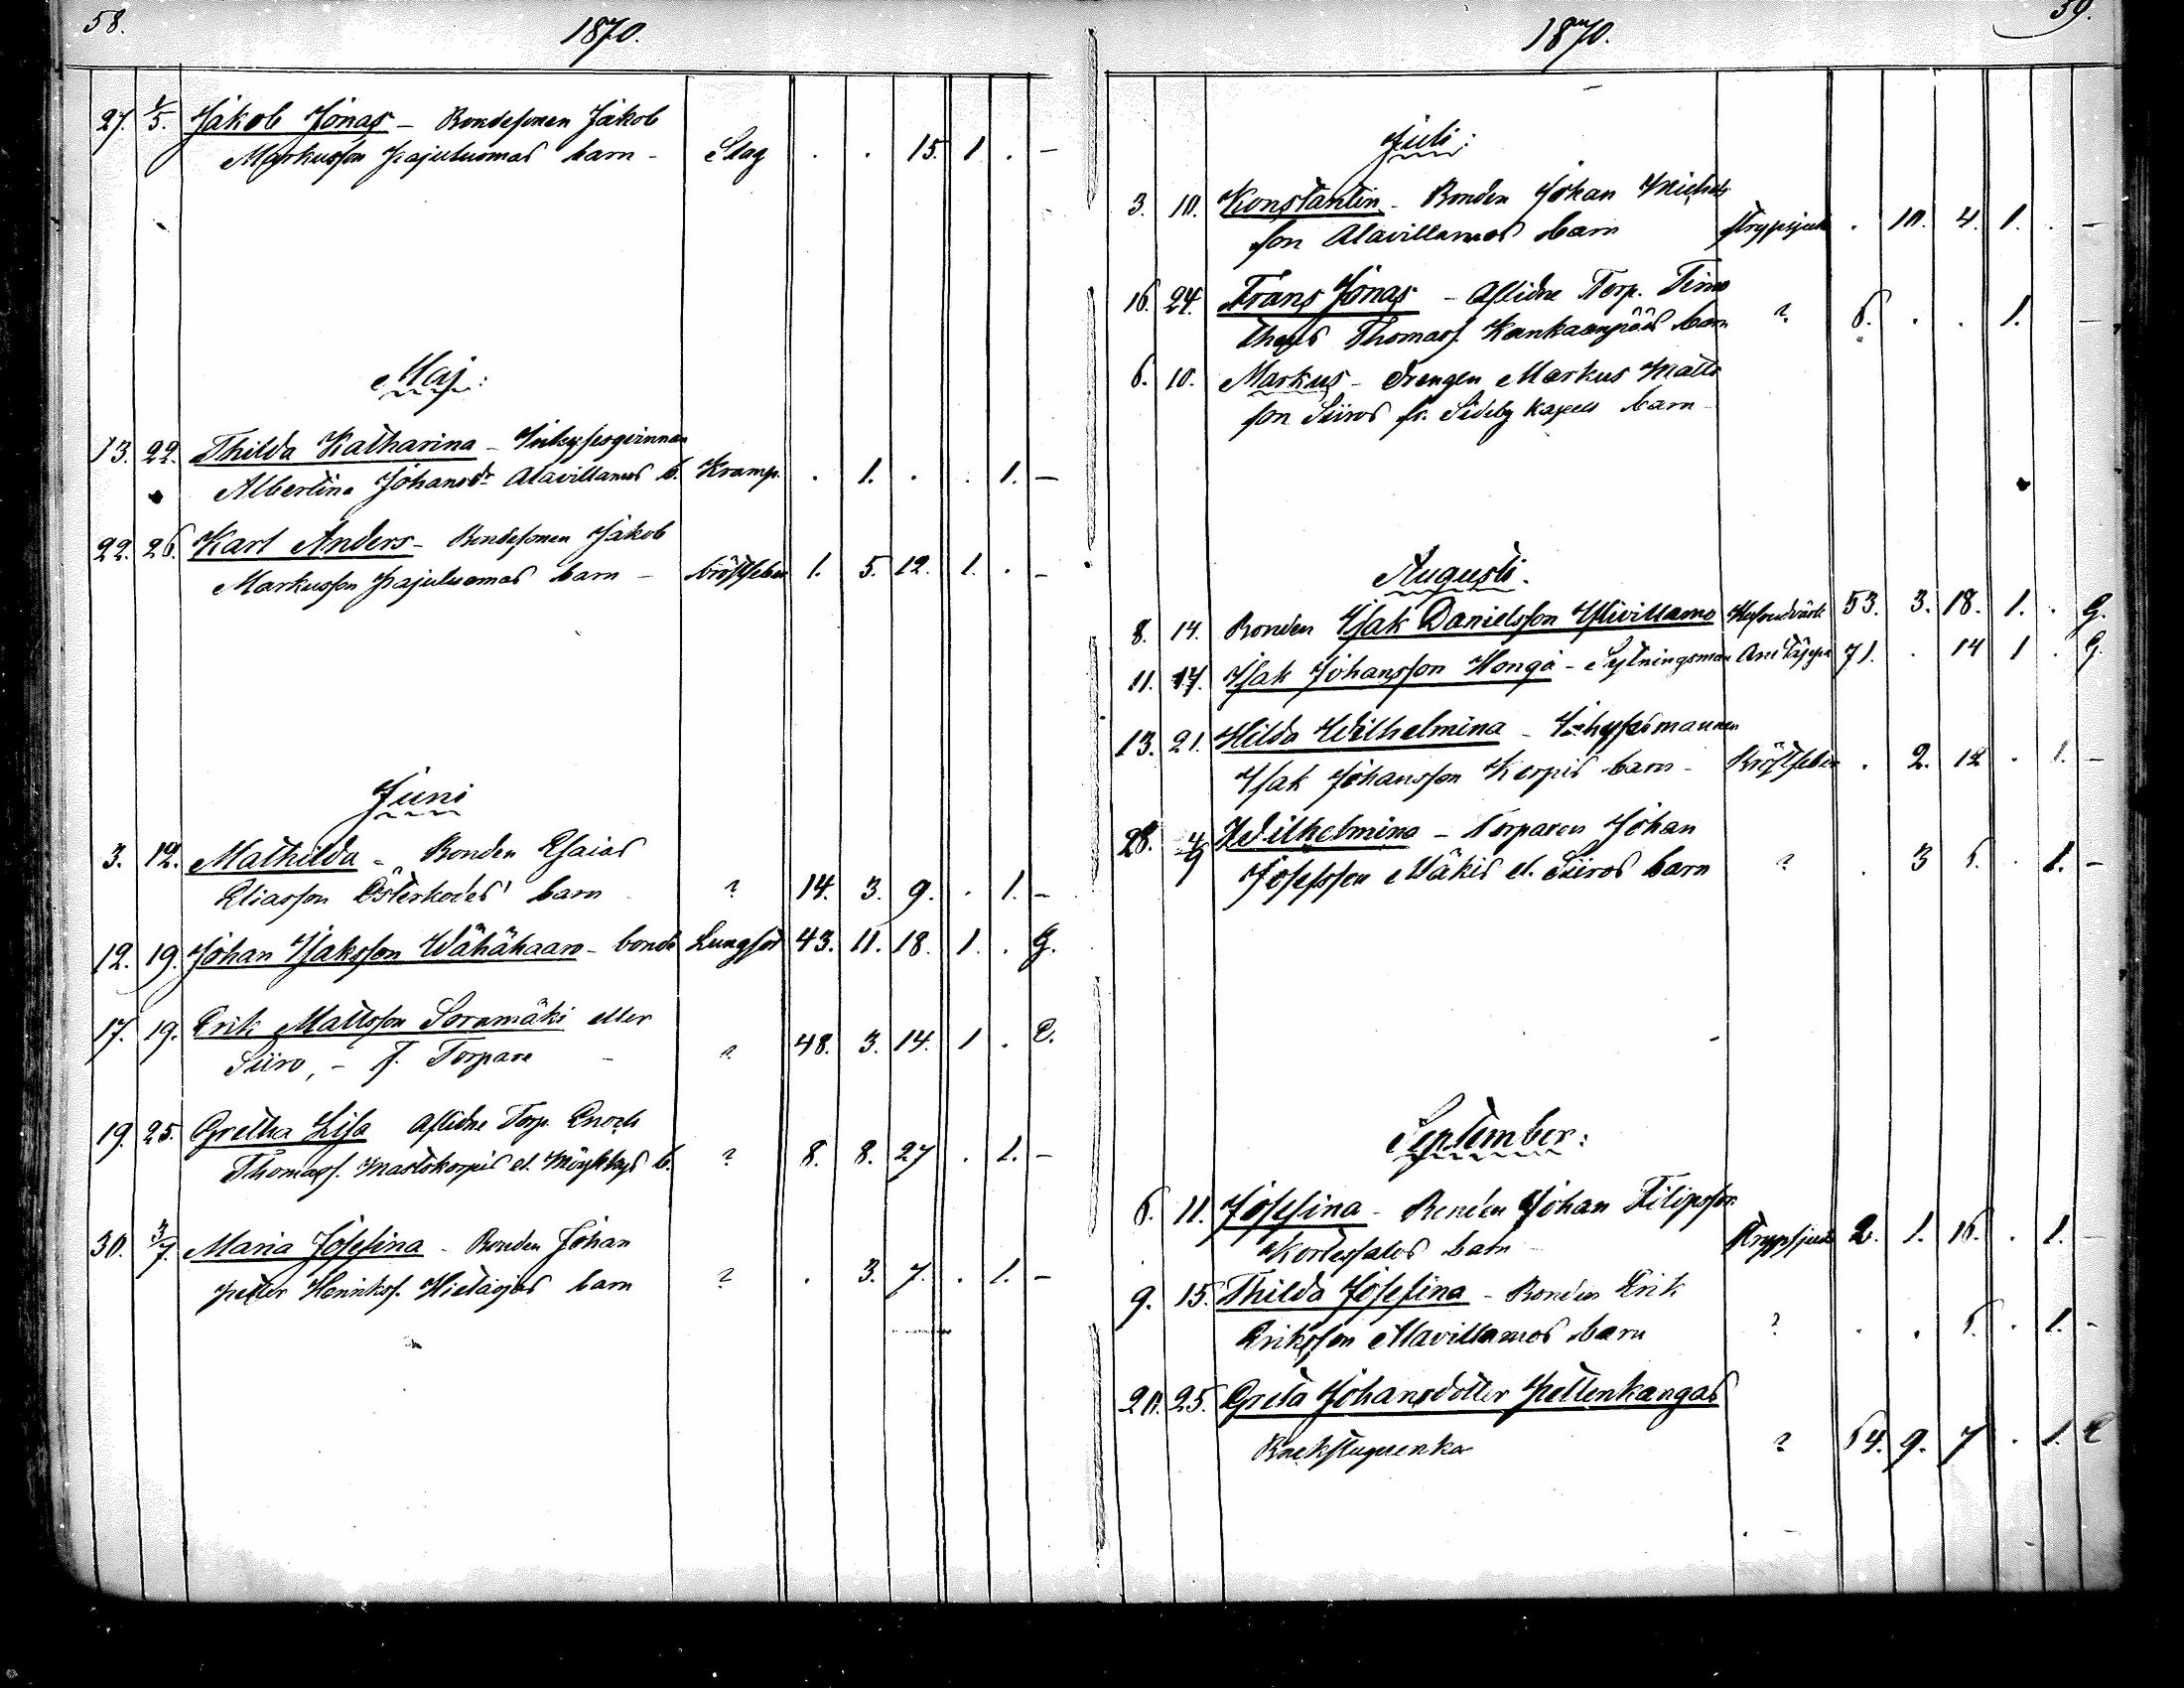 58.
1870.
27. 1/5. Jakob Jonas - Bondesonen Jakob
Markusson Pajuluomas barn - Slag . . 15. 1 . -
Maj:
13. 22. Thilda Katharina -
Albertina Johansdr Alavillamos b. Kramp. . 1. . . 1. -
22. 26. Karl Anders - Bondesonen Jakob
Markusson Pajuluomas barn - 1. 5. 12. 1. . -
Juni
3. 12. Mathilda - Bonden Esaias
Eliasson Österkodes' barn ? 14. 3. 9. . 1. -
12. 19. Johan Isaksson Wähähaaro - bonde Lungsot 43. 11. 18. 1. . G.
17. 19. Erik Mattsson Soramäki eller
Siiro, - f. Torpare - ? 48. 3. 14. 1 . E.
19. 25. Gretha Lisa Aflidne Torp. Enoch
Thomass. Mastokorpis el. b. ? 8. 8. 27 . 1. -
30. 3/7. Maria Josefina - Bonden Johan
Petter Henrikss. Hietaojas barn ? . 3. 7. . 1. -
59.
1870.
Juli:
3. 10. Konstantin - Bonden Johan Michels
son Alavillamos barn . 10. 4. 1. . -
16. 24. Frans Jonas - Aflidne Torp. Timo
theus Thomass. Kankaanpääs barn ? 6. . . 1. -
6. 10. Markus - Drengen Markus Matts
son Siiros fr. Sideby kapell barn -
Augusti.
8. 14. Bonden Isak Danielsson Ylivillamo 53. 3. 18. 1. . G.
11. 17. Isak Johansson Honga - Sytningsman 71. . 14 1 . G.
13. 21. Hilda Wilhelmina - Inhysesmannen
Isak Johansson Korpis barn - . 2. 12 . 1. -
28. 4/9 Wilhelmina - Torparen Johan
Josefsson Mäkis el. Siiros barn ? . 3 6. . 1. -
September:
6. 11. Josefina - Bonden Johan Filipsson
Kortesalos barn Strypsjuka 2. 1. 16. . 1. -
9. 15. Thilda Josefina - Bonden Erik
Eriksson Alavillamos barn ? . . 6. . 1. -
20. 25. Greta Johansdotter Peltenkangas
Backstuguenka ? 64. 9. 7 . 1. E